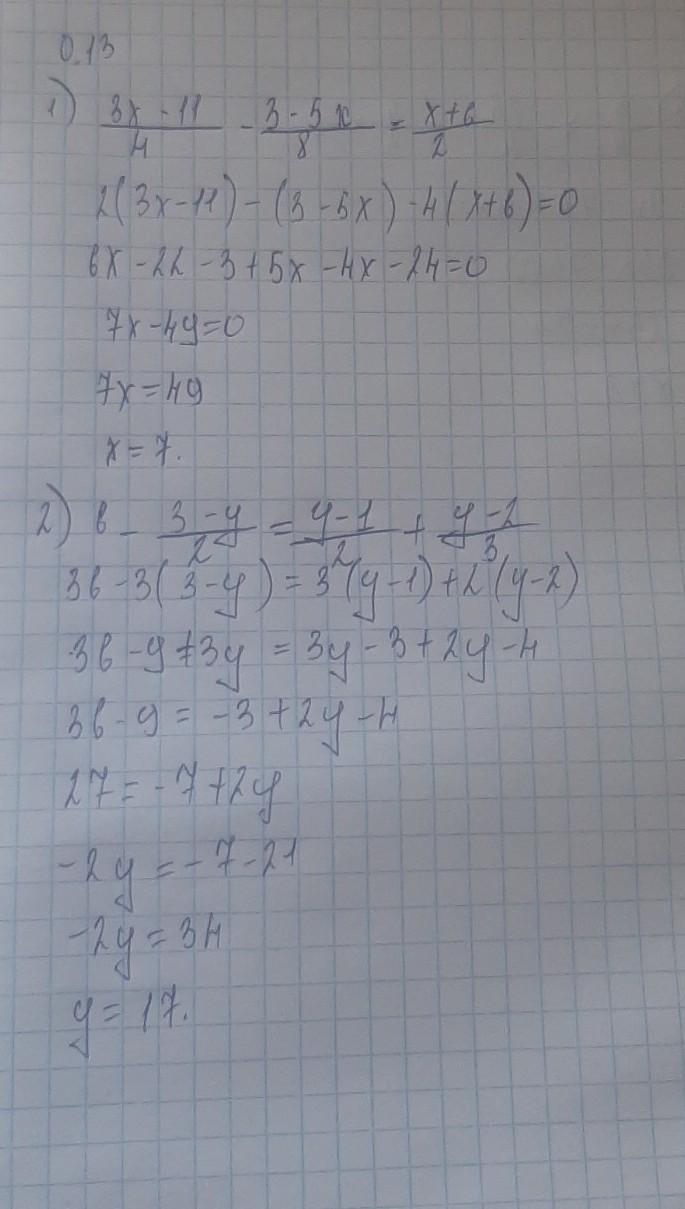 0.13
1) (3x - 11)/4 - (3 - 5x)/8 = (x+6)/2
2(3x-11)-(3-5x)-4(x+6)=0
6x-22-3+5x-4x-24=0
7x-49=0
7x=49
x=7.
2) 6 - (3-y)/2 = (y-1)/2 + (y-2)/3
36-3(3-y)=3(y-1)+2(y-2)
36-9+3y=3y-3+2y-4
36-9=-3+2y-4
27=-7+2y
-2y=-7-27
-2y=34
y=17.